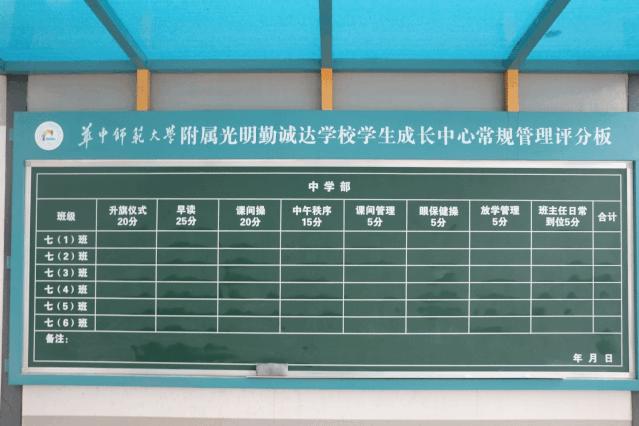 华中师范大学附属光明勤诚达学校学生成长中心常规管理评分板
中学部
班级 升旗仪式20分 早读25分 课间操20分 中午秩序15分 课间管理5分 眼保健操5分 放学管理5分 班主任日常到位5分 合计
七（1）班
七（2）班
七（3）班
七（4）班
七（5）班
七（6）班
备注：
年 月 日